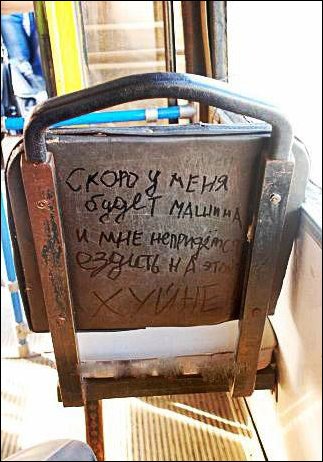 СКОРО У МЕНЯ
будет МАШИНА
И МНЕ НЕПРИДЁТС
ОЗДИТЬ НА ЭТОЙ
ХУЙНЕ